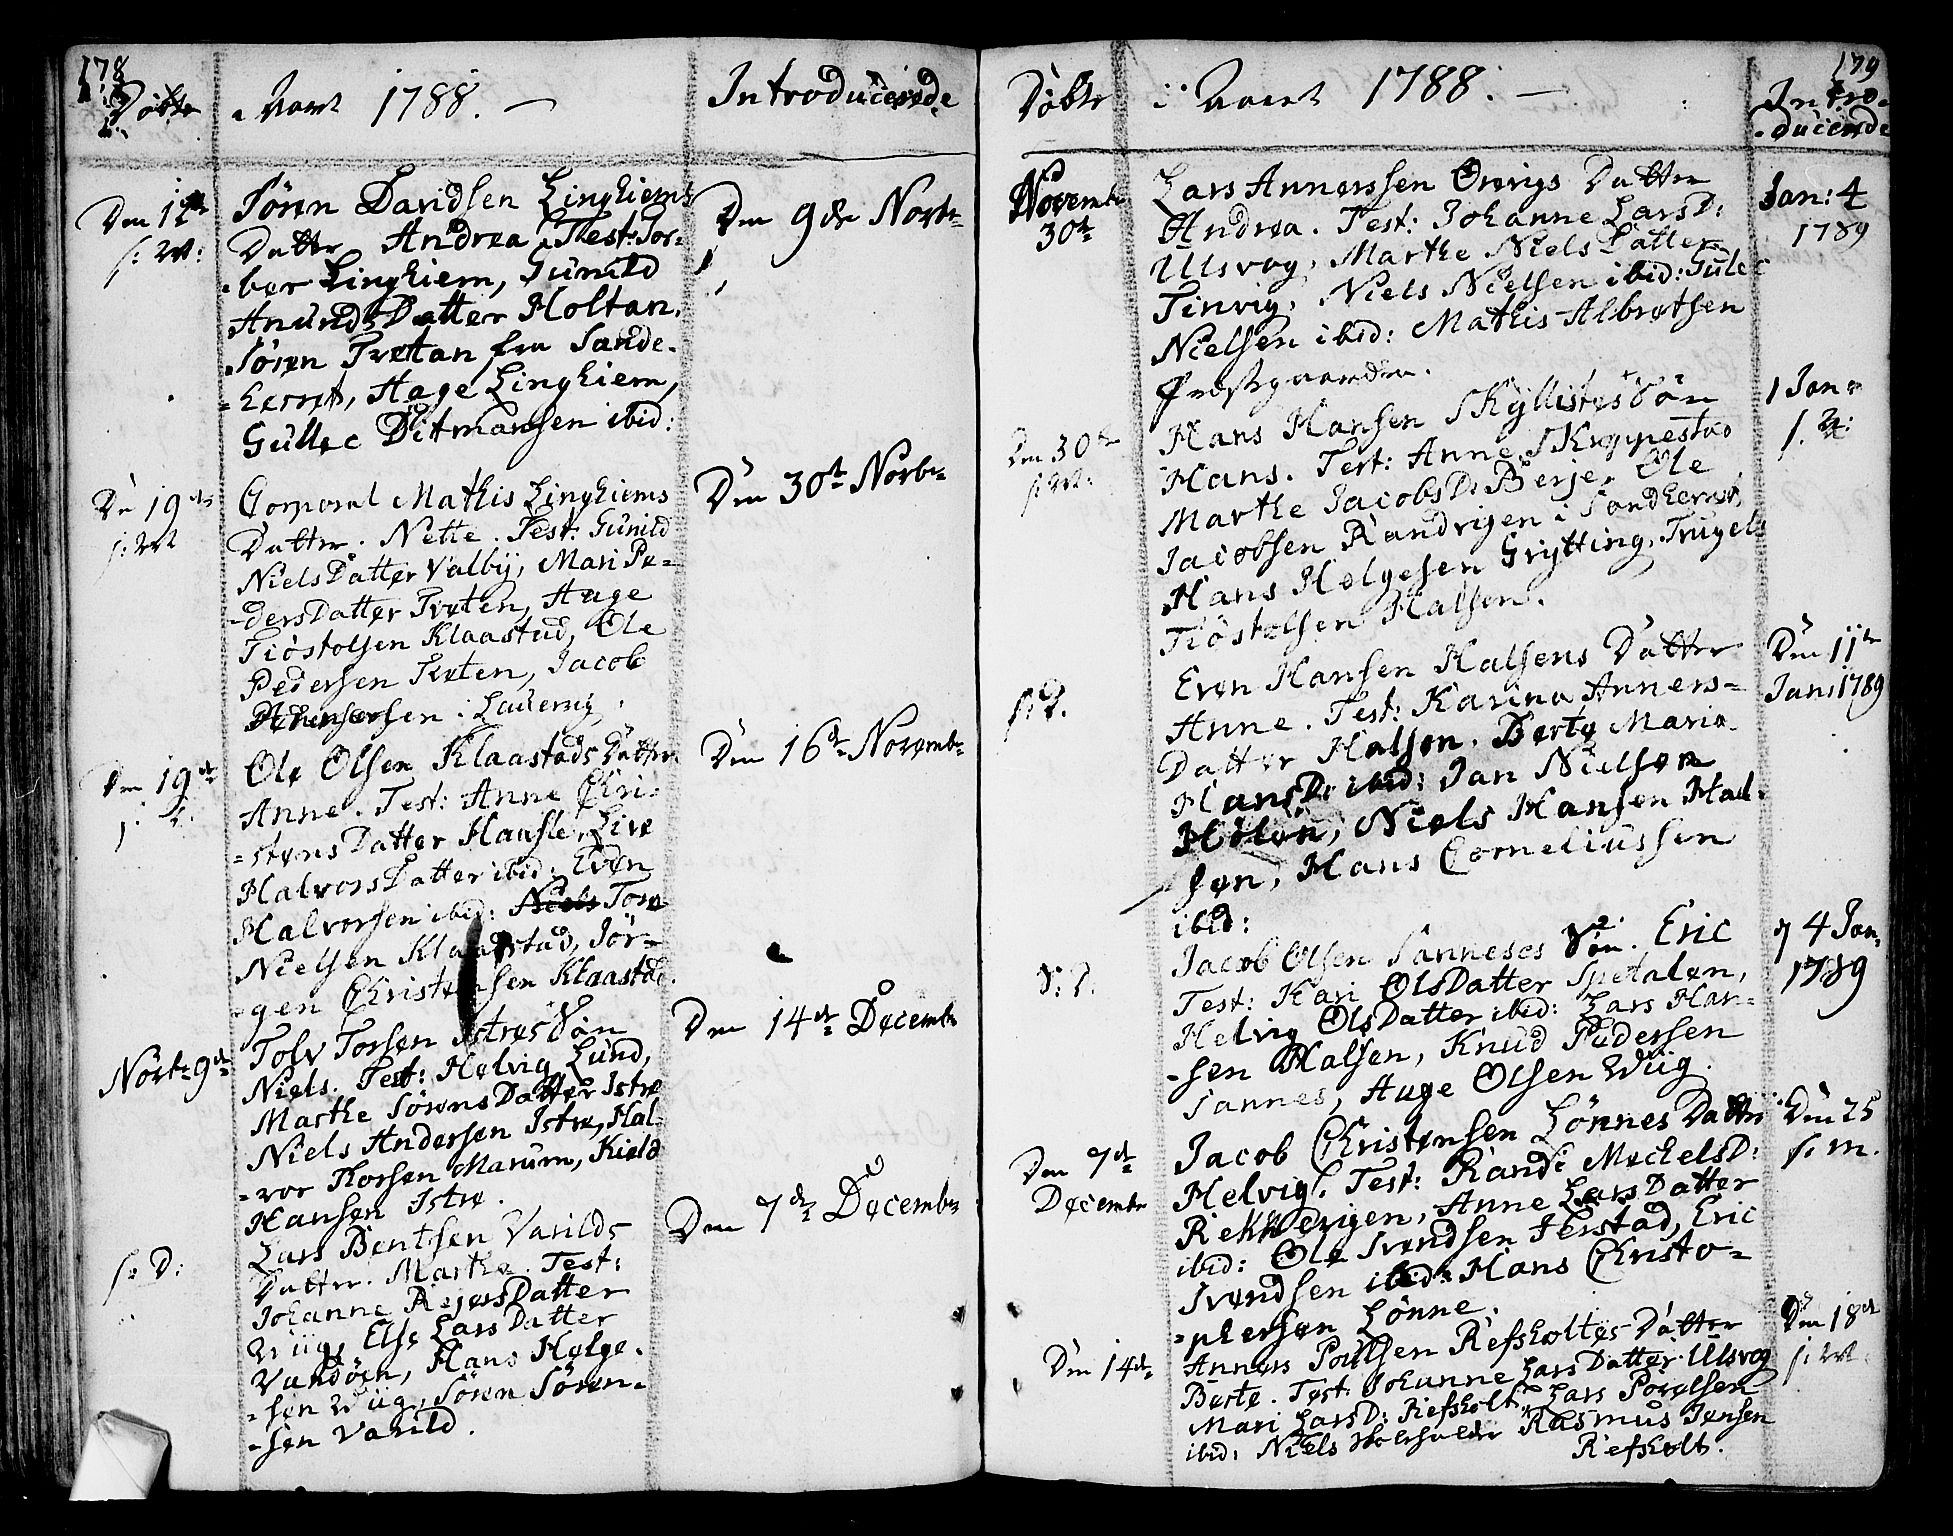 178
Døbte
Aaret 1788. —
Introducerede
Den 12te
s: M:
Søren Davidsen Linghiems
Datter Andrea. Test: Tor-
-bor Linghiem, Gunild
Anunds Datter Holtan,
Søren Trøtan fra Sande-
-herret, Hage Linghiem,
Gullec Ditmansen ibid:
Den 9de Novbr
De 19de
s: M
Corporal Mathis Linghiems
Datter. Nette. Test: Gunild
Niels Datter Valby, Mari Pe-
-dersDatter Trøten, Hage
Tiøstolsen Klaastad, Ole
Pedersen Trøten, Jacob
Laurvig.
Den 30te Novbr
Den 19de
Ole Olsen Klaastads Datter
Anne. Test: Anne Chri-
-stensDatter Haasle, Live
HalvorsDatter ibid: Even
Halvorsen ibid: Tore
Nielsen Klaastad, Jør-
-gen Christensen Klaastad.
Den 16de Novembr
Novbr 9de
Tolv Torsen Istres Søn
Niels. Test: Helvig Lund,
Marthe SørensDatter Istre
Niels Andersen Istre, Hal-
-vor Thorsen Marum, Kield
Hansen Istre.
Den 14de Decembr
s: D:
Lars Bentsen Varilds
Datter. Marthe. Test:
Johanne RejersDatter
Wiig, Else LarsDatter
Vandøen, Hans Helge-
-sen Wiig, Søren Søren-
-sen Varild.
Den 7de Decembr
179
Døbte
i Aaret 1788. —
Intro-
-ducerede
Novembr
30te
Lars Annerssen Ønvigs Datter
Andrea. Test: Johanne LarsD:
Ulsvog, Marthe Niels Datter
Tinvig, Niels Nielsen ibid: Gulec
Nielsen ibid: Mathis Albretsen
Præstegaarden.
Jan: 4
1789
Den 30te
s: M:
Hans Hansen Skyllistes Søn
Hans. Test: Anne Skeppestad
Marthe JacobsD: Berje, Ole
Jacobsen Randvigen i Sandherret,
Hans Helgesen Grytting, Trugels
Tiøstolsen Halsen.
1 Jan:
s. A:
s: D.
Even Hansen Halsens Datter
Anne. Test: Karina Anners-
Datter Halsen. Berte Maria
HansD: ibid: Jan Nielsen
Holen, Niels Hansen Hal-
sen, Hans Corneliussen
ibid:
Den 11te
Jan: 1789
S: D.
Jacob Olsen Sanneses Søn. Eric
Test: Kari OlsDatter Spetalen,
Helvig OlsDatter ibid: Lars Han-
-sen Halsen, Knud Pedersen
Sannes, Hage Olsen Wiig.
4 Jan:
1789
Den 7de
Decembr
Jacob Christensen Lønnes Datter
Helvig. Test: Randi MechelsD:
Rekkevigen, Anne LarsDatter
ibid: Ole Svendsen Jerstad, Eric
Svendsen ibid: Hans Christo-
-phersen Lønne.
Den 25
s. m.
Den 14de
Anners Poulsen Refsholtes Datter
Berte. Test: Johanne LarsDatter Ulsvog
Mari LarsD: Refsholt, Lars Povelsen
ibid: Niels Rasmus Jensen
Refsholt.
Den 18de
s: M: